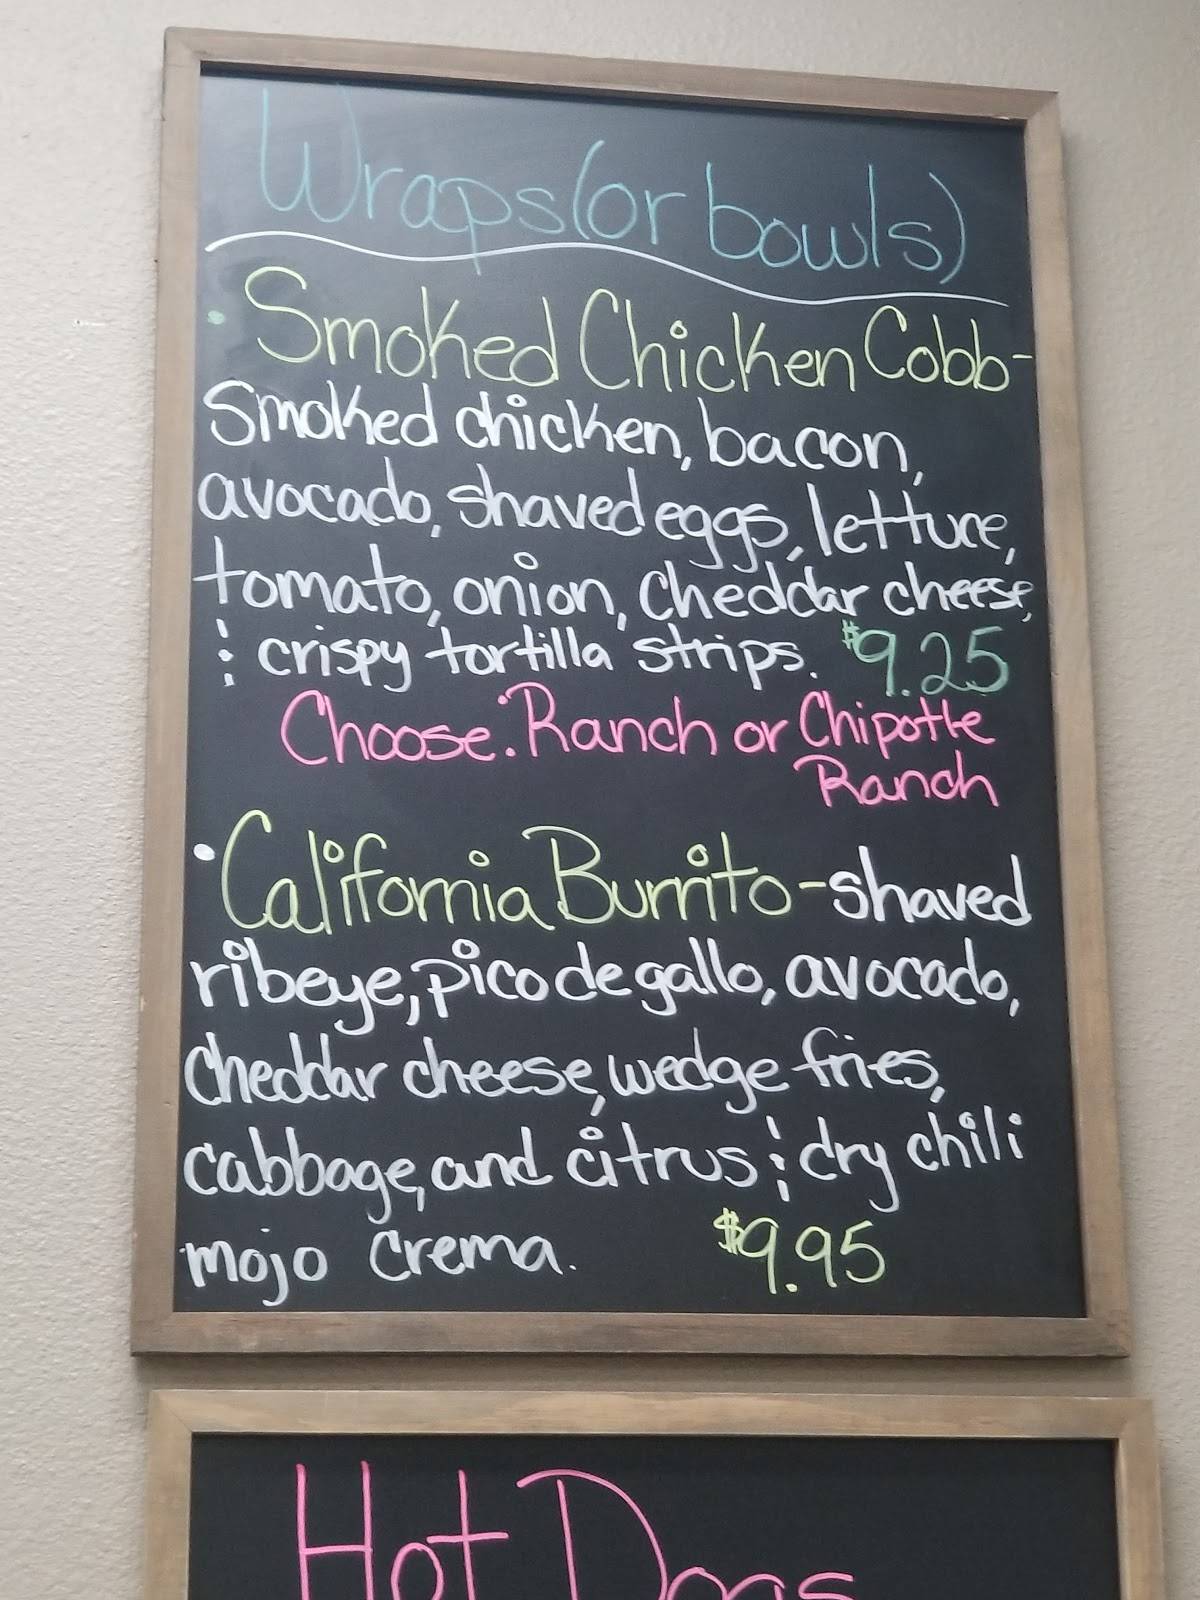 Wraps (or bowls)
• Smoked Chicken Cobb-
Smoked chicken, bacon,
avocado, shaved eggs, lettuce,
tomato, onion, cheddar cheese,
& crispy tortilla strips. $9.25
Choose: Ranch or Chipotle
Ranch
• California Burrito - shaved
ribeye, pico de gallo, avocado,
cheddar cheese, wedge fries,
cabbage, and citrus & dry chili
mojo crema. $9.95
Hot Dogs